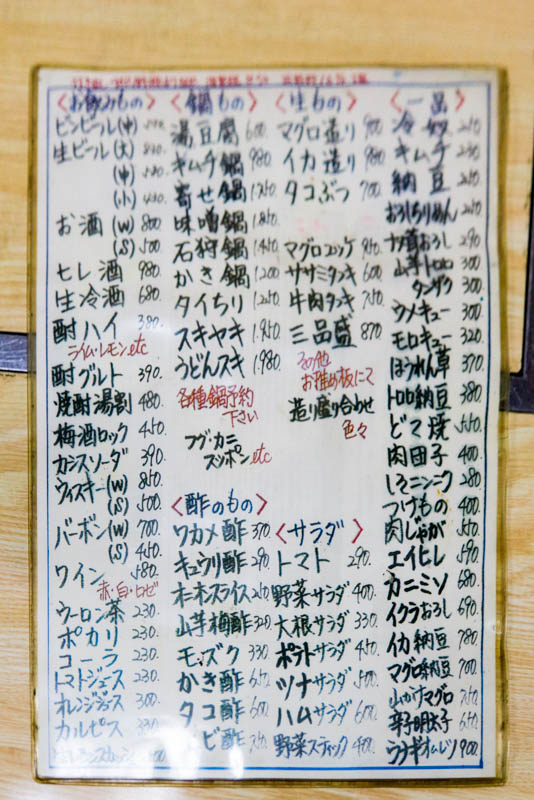 〈お飲みもの〉
ビンビール(中)
生ビール(大)
(中)
(小)
お酒(W) 800
(S) 500
ヒレ酒 980
生冷酒 680
酎ハイ 380
ライム・レモン.etc
酎グルト 390
焼酎湯割 480
梅酒ロック 450
カシスソーダ 390
ウィスキー(W) 850
(S) 500
バーボン(W) 700
(S) 450
ワイン 580
赤・白・ロゼ
ウーロン茶 230
ポカリ 230
コーラ 230
トマトジュース 230
オレンジジュース 300
カルピス 330
〈鍋もの〉
湯豆腐 600
キムチ鍋 980
寄せ鍋 1.250
味噌鍋 1.850
石狩鍋 1.450
かき鍋 1.200
タイちり 1.250
スキヤキ 1.950
うどんスキ 1.980
各種鍋予約
下さい
フグ・カニ
スッポン etc
〈酢のもの〉
ワカメ酢 370
キュウリ酢 290
オニオンスライス 210
山芋梅酢 320
モズク 330
かき酢
タコ酢 600
ビ酢
〈生もの〉
マグロ造り 900
イカ造り 980
タコぶつ 700
マグロユッケ 950
ササミタタキ 600
牛肉タタキ 750
三品盛 870
その他
お推め板にて
造り盛り合わせ
色々
〈サラダ〉
トマト 290
野菜サラダ 400
大根サラダ 330
ポテトサラダ 450
ツナサラダ 500
ハムサラダ 600
野菜スティック 400
〈一品〉
冷奴 210
キムチ 230
納豆 210
おろしちりめん 210
ナメ茸おろし 290
山芋トロロ 300
タンザク 300
ウメキュー 300
モロキュー 320
ほうれん草 370
トロロ納豆 380
どマ焼 550
肉団子 400
いそニンニク 280
つけもの 400
肉じゃが 550
エイヒレ 590
カニミソ 680
イクラおろし 690
イカ納豆 780
マグロ納豆 700
山かけマグロ 750
辛子明太子 650
ウナギオムレツ 900